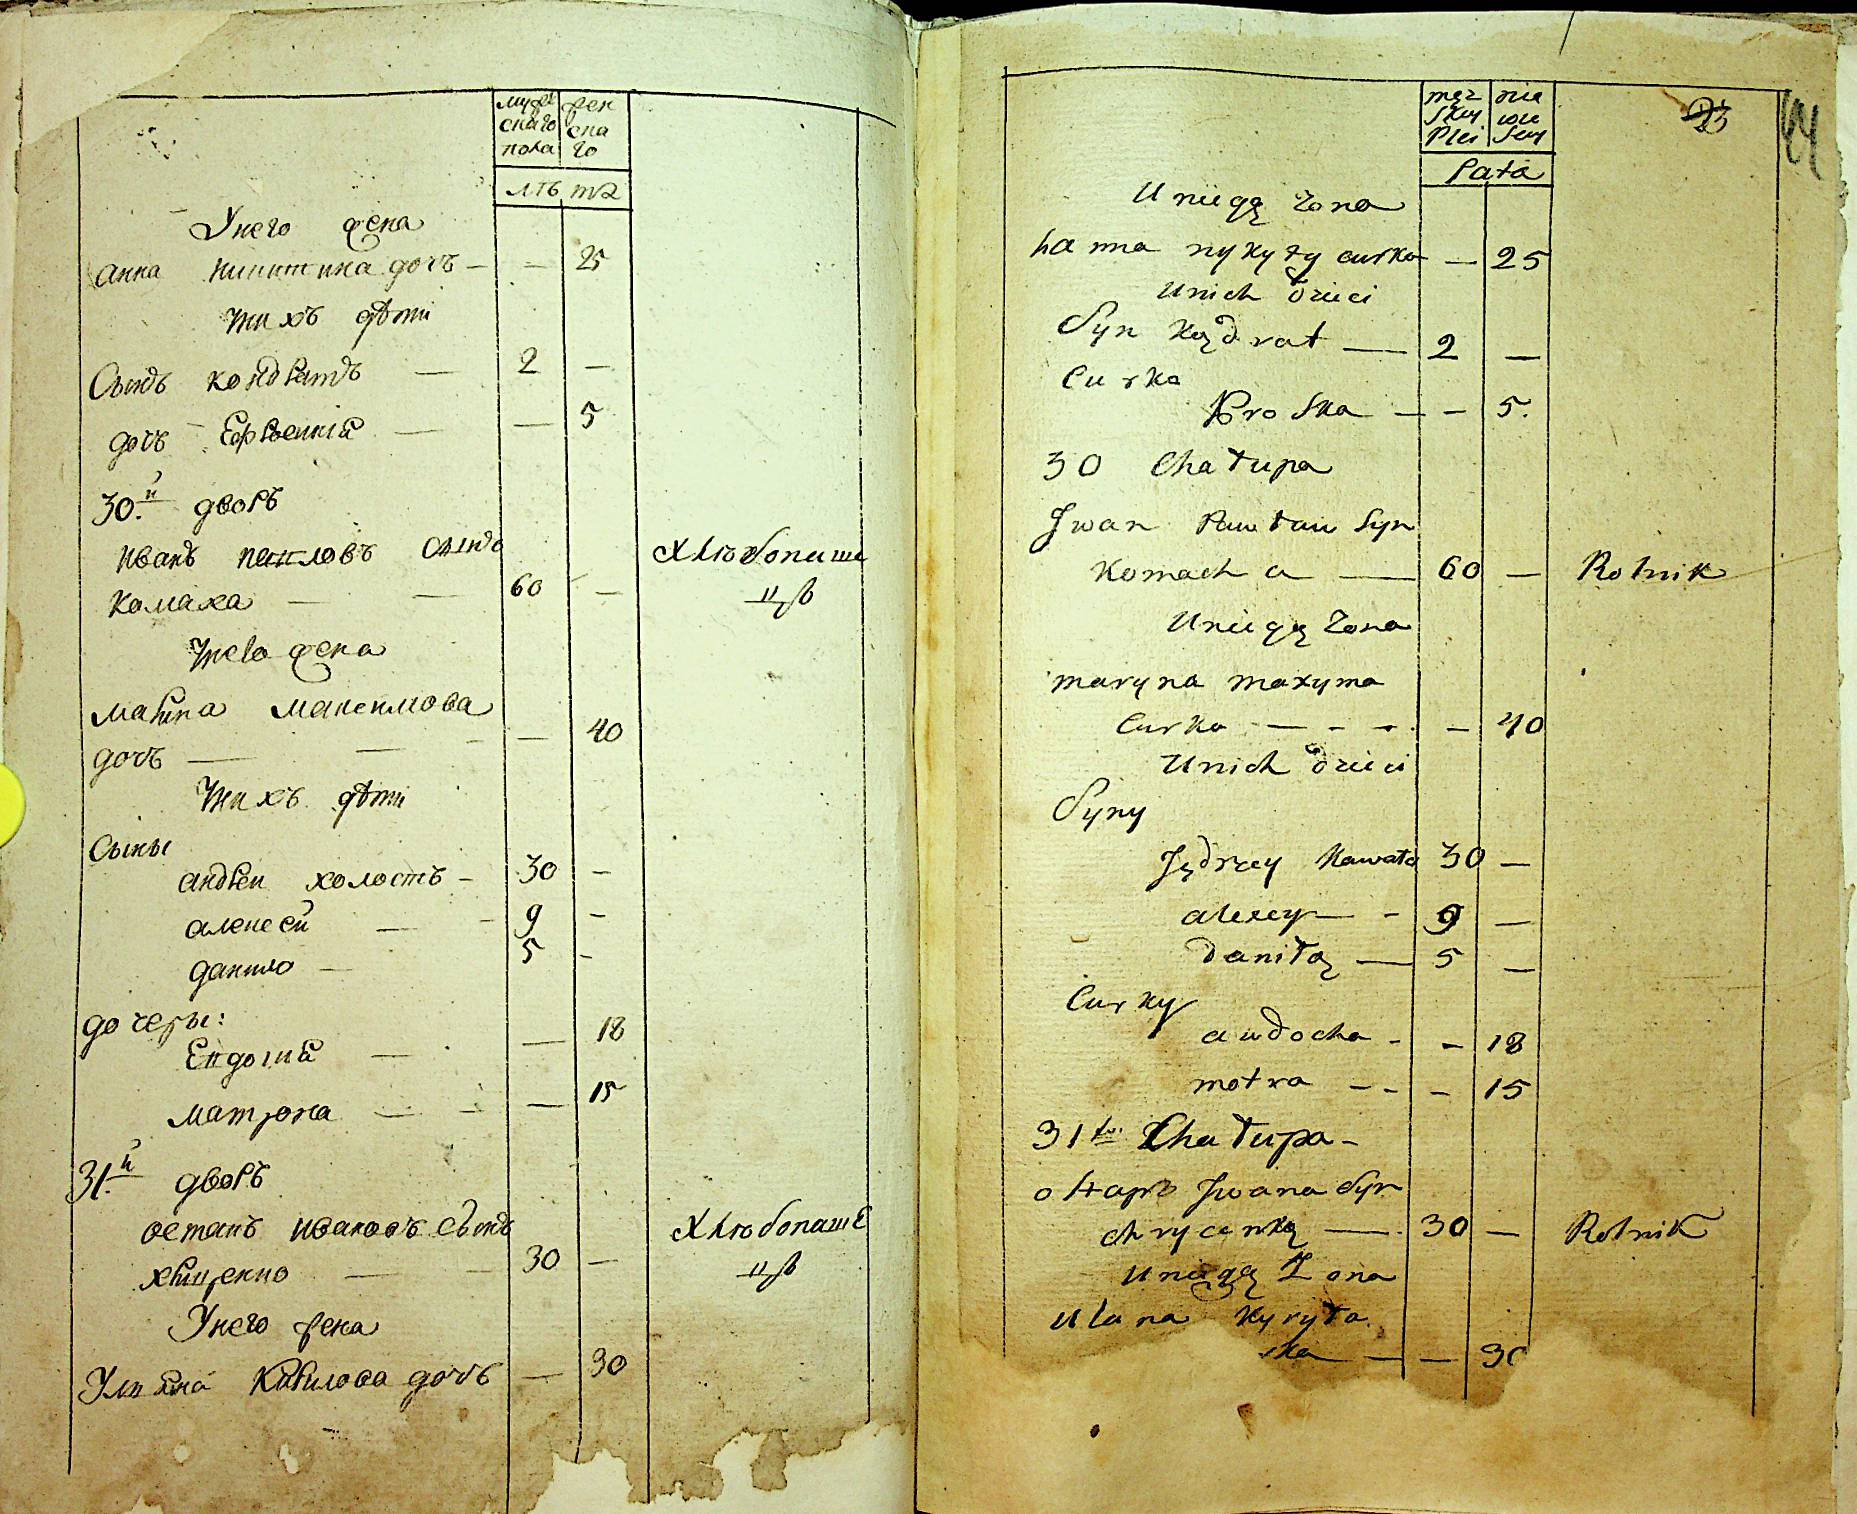 мужескаго пола
женскаго
лѣта
Унего жена
анна никитина дочь — — 25
Уних дѣти
Сынъ кондратъ — 2 —
дочь — Ефросинія — — 5
30.й дворъ
иванъ павловъ сынъ Хлѣбопаше
комаха — — 60 — цъ
Унево жена
марина максимова
дочь — — — — 40
Унихъ дѣти
Сыны
андреи холостъ — 30 —
алексей — — 9 —
данило — 5 —
дочеры:
Евдокия — — 18
матрона — — — 15
31.й дворъ
остапъ ивановъ сынъ Хлѣбопаше
хриценко — — 30 — цъ
Унего жена
Улияна Кирилова дочь — 30
męz skey Plci
nie wie scey
23
44
Lata
U niegą Zona
hanna nykyty curka — 25
Unich dzieci
Syn Kądrat — 2 —
Curka
Proska — — 5.
30 Chałupa
Jwan Pawłau Syn
Komacha — 60 — Rolnik
Uniegą Zona
maryna maxyma
Curka — - - - — 40
Unich dzieci
Syny
Jędrzey Kawała 30 —
alexey — - 9 —
daniłą — 5 —
Curky
audocha - - 18
motra — - - 15
31te Chałupa -
ostap Jwana Syn
chrycenką — 30 — Rolnik
Uniegą Zona
Ulana Kyryła
ka — — 30